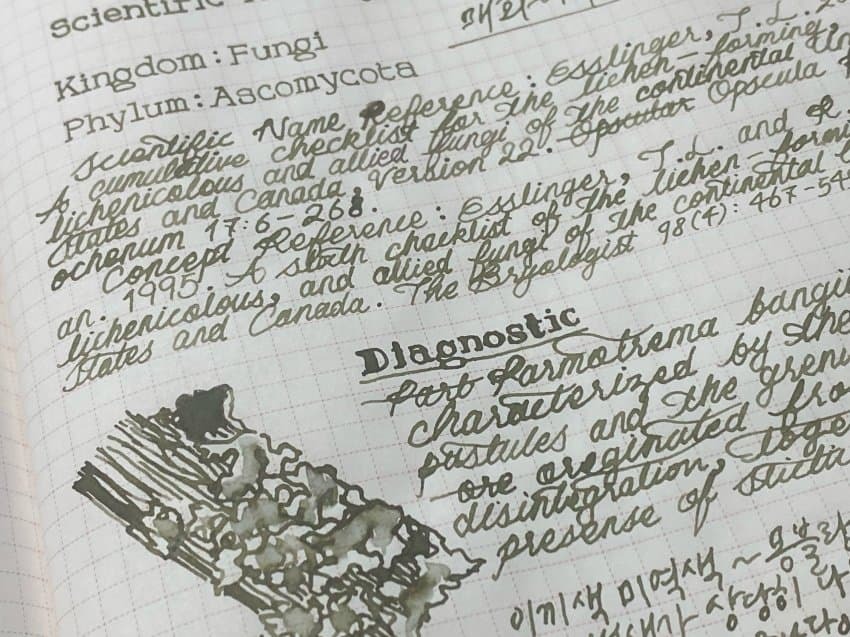 Scientific
Kingdom: Fungi
Phylum: Ascomycota
Scientific Name Reference: Esslinger, T.L.
A cumulative checklist for the lichen-forming,
lichenicolous and allied fungi of the continental
States and Canada, Version 22. Opscular Opscula
ochanum 17:6-268.
Concept Reference: Esslinger, T.L. and R.
an. 1995. A sixth chacklist of the lichen-forming
lichenicolous, and allied fungi of the continental
States and Canada. The Bryologist 98(4): 467-54
Diagnostic
Part Parmotrema
characterized by the
pustules and the
are originated
disintegration,
presense of
이끼색 미역색 ~